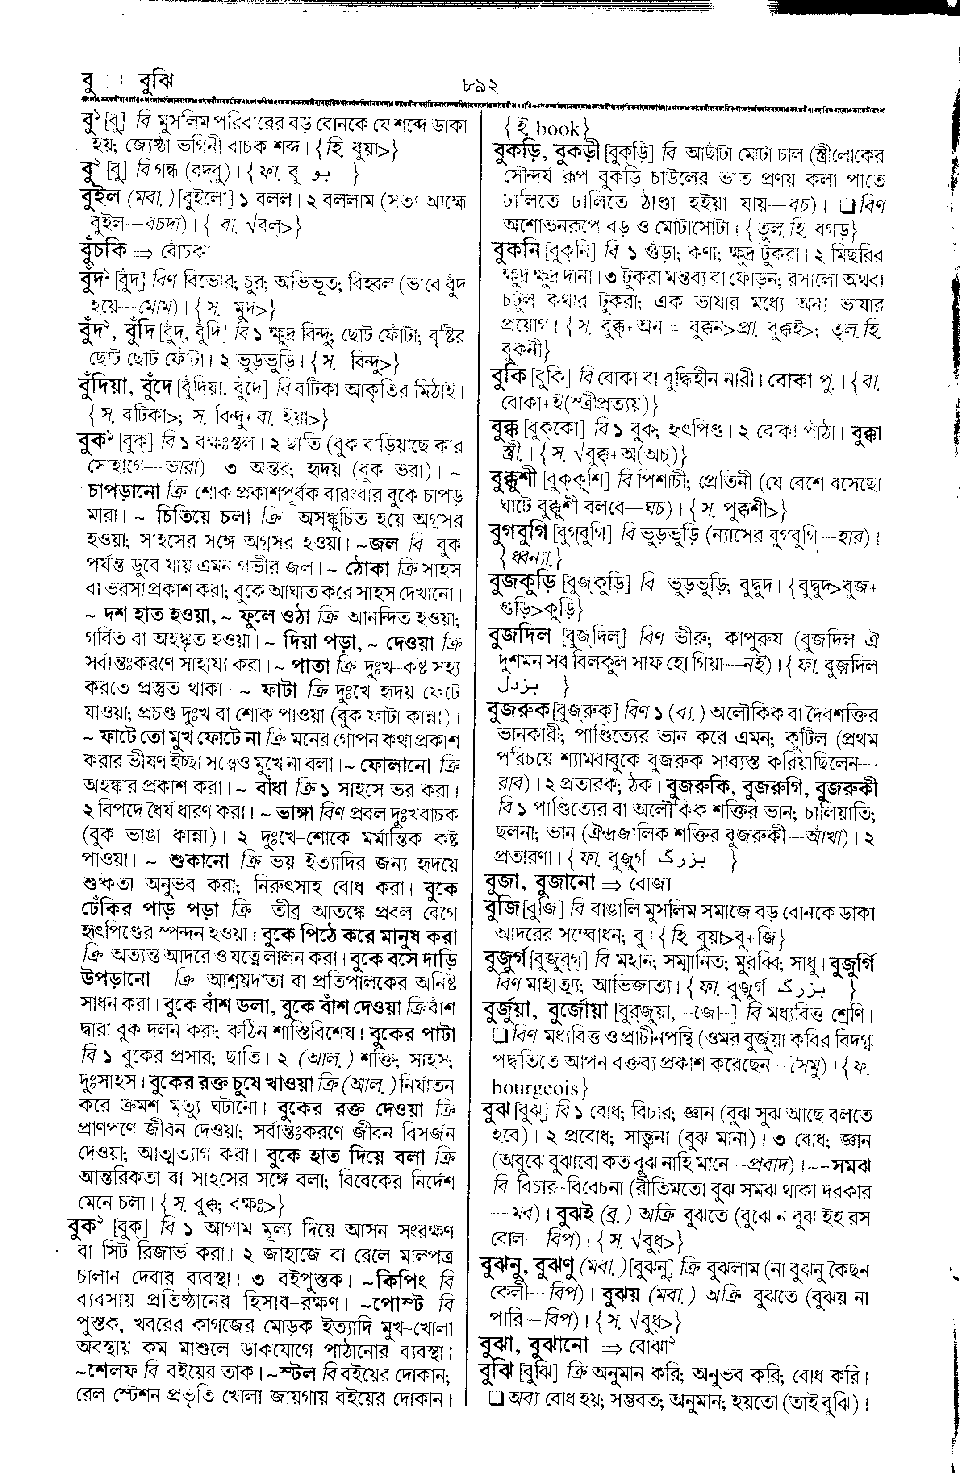 বু ॥ বুঝি
৮৯২
বু১ [বু] বি মুসলিম পরিবারের বড় বোনকে যে শব্দে ডাকা
হয়; জ্যেষ্ঠা ভগিনী বাচক শব্দ। {হি. বুয়া>}
বু২ [বু] বি গন্ধ (বদবু)। {ফা. বু بو }
বুইল (মবা.) [বুইলো] ১ বলল। ২ বললাম (সত্য আহ্মে
বুইল—বচদা)। {বা. √বল্>}
বুঁচকি ⇒ বোঁচকা
বুঁদ১ [বুঁদ্] বিণ বিভোর; চুর; অভিভূত; বিহ্বল (ভাবে বুঁদ
হয়ে—মোম)। {স. মুদ>}
বুঁদ২, বুঁদি [বুঁদ্, বুঁদি] বি ১ ক্ষুদ্র বিন্দু; ছোট ফোঁটা; বৃষ্টির
ছোট ছোট ফোঁটা। ২ ভুড়ভুড়ি। {স. বিন্দু>}
বুঁদিয়া, বুঁদে [বুঁদিয়া, বুঁদে] বি বটিকা আকৃতির মিঠাই।
{স. বটিকা>; স. বিন্দু+বা. ইয়া>}
বুক১ [বুক্] বি ১ বক্ষঃস্থল। ২ ছাতি (বুক বাড়িয়াছে কার
সোহাগে—ভারা) ৩ অন্তর; হৃদয় (বুক ভরা)। ~
চাপড়ানো ক্রি শোক প্রকাশপূর্বক বারংবার বুকে চাপড়
মারা। ~ চিতিয়ে চলা ক্রি অসঙ্কুচিত হয়ে অগ্রসর
হওয়া; সাহসের সঙ্গে অগ্রসর হওয়া। ~জল বি বুক
পর্যন্ত ডুবে যায় এমন গভীর জল। ~ ঠোকা ক্রি সাহস
বা ভরসা প্রকাশ করা; বুকে আঘাত করে সাহস দেখানো।
~ দশ হাত হওয়া, ~ ফুলে ওঠা ক্রি আনন্দিত হওয়া;
গর্বিত বা অহঙ্কৃত হওয়া। ~ দিয়া পড়া, ~ দেওয়া ক্রি
সর্বান্তঃকরণে সাহায্য করা। ~ পাতা ক্রি দুঃখ-কষ্ট সহ্য
করতে প্রস্তুত থাকা। ~ ফাটা ক্রি দুঃখে হৃদয় ফেটে
যাওয়া; প্রচণ্ড দুঃখ বা শোক পাওয়া (বুক ফাটা কান্না)।
~ ফাটে তো মুখ ফোটে না ক্রি মনের গোপন কথা প্রকাশ
করার ভীষণ ইচ্ছা সত্ত্বেও মুখে না বলা। ~ ফোলানো ক্রি
অহঙ্কার প্রকাশ করা। ~ বাঁধা ক্রি ১ সাহসে ভর করা।
২ বিপদে ধৈর্য ধারণ করা। ~ ভাঙ্গা বিণ প্রবল দুঃখবাচক
(বুক ভাঙা কান্না)। ২ দুঃখে-শোকে মর্মান্তিক কষ্ট
পাওয়া। ~ শুকানো ক্রি ভয় ইত্যাদির জন্য হৃদয়ে
শুষ্কতা অনুভব করা; নিরুৎসাহ বোধ করা। বুকে
ঢেঁকির পাড় পড়া ক্রি তীব্র আতঙ্কে প্রবল বেগে
হৃৎপিণ্ডের স্পন্দন হওয়া। বুকে পিঠে করে মানুষ করা
ক্রি অত্যন্ত আদরে ও যত্নে লালন করা। বুকে বসে দাড়ি
উপড়ানো ক্রি আশ্রয়দাতা বা প্রতিপালকের অনিষ্ট
সাধন করা। বুকে বাঁশ ডলা, বুকে বাঁশ দেওয়া ক্রি বাঁশ
দ্বারা বুক দলন করা; কঠিন শাস্তিবিশেষ। বুকের পাটা
বি ১ বুকের প্রসার; ছাতি। ২ (আল.) শক্তি; সাহস;
দুঃসাহস। বুকের রক্ত চুষে খাওয়া ক্রি (আল.) নির্যাতন
করে ক্রমশ মৃত্যু ঘটানো। বুকের রক্ত দেওয়া ক্রি
প্রাণপণে জীবন দেওয়া; সর্বান্তঃকরণে জীবন বিসর্জন
দেওয়া; আত্মত্যাগ করা। বুকে হাত দিয়ে বলা ক্রি
আন্তরিকতা বা সাহসের সঙ্গে বলা; বিবেকের নির্দেশ
মেনে চলা। {স. বুক্ক; বক্ষঃ>}
বুক২ [বুক্] বি ১ আগাম মূল্য দিয়ে আসন সংরক্ষণ
বা সিট রিজার্ভ করা। ২ জাহাজে বা রেলে মালপত্র
চালান দেবার ব্যবস্থা। ৩ বইপুস্তক। ~কিপিং বি
ব্যবসায় প্রতিষ্ঠানের হিসাব-রক্ষণ। ~পোস্ট বি
পুস্তক, খবরের কাগজের মোড়ক ইত্যাদি মুখ-খোলা
অবস্থায় কম মাশুলে ডাকযোগে পাঠানোর ব্যবস্থা।
~শেলফ বি বইয়ের তাক। ~স্টল বি বইয়ের দোকান;
রেল স্টেশন প্রভৃতি খোলা জায়গায় বইয়ের দোকান।
{ই. book}
বুকড়ি, বুকড়ী [বুক্‌ড়ি] বি আছাঁটা মোটা চাল (স্ত্রীলোকের
সৌন্দর্য রূপ বুকড়ি চাউলের ভাত প্রণয় কলা পাতে
ঢালিতে ঢালিতে ঠাণ্ডা হইয়া যায়—বচ)। ❏ বিণ
অশোভনরূপে বড় ও মোটাসোটা। {তুল. হি. বগড়}
বুকনি [বুক্‌নি] বি ১ গুঁড়া; কণা; ক্ষুদ্র টুকরা। ২ মিছরির
ক্ষুদ্র ক্ষুদ্র দানা। ৩ টুকরা মন্তব্য বা ফোড়ন; রসালো অথবা
চটুল কথার টুকরা; এক ভাষার মধ্যে অন্য ভাষার
প্রয়োগ। {স. বুক্ক+অন = বুক্কন>প্রা. বুক্কই>; তুল. হি.
বুকনী}
বুকি [বুকি] বি বোকা বা বুদ্ধিহীন নারী। বোকা পু.। {বা.
বোকা+ই(স্ত্রীপ্রত্যয়)}
বুক্ক [বুক্‌কো] বি ১ বুক; হৃৎপিণ্ড। ২ বোকা পাঁঠা। বুক্কা
স্ত্রী.। {স. √বুক্ক্+অ(অচ্)}
বুক্কুশী [বুক্‌কুশি] বি পিশাচী; প্রেতিনী (যে বেশে বসেছো
ঘাটে বুক্কুশী বলবে—ঘচ)। {স. পুক্কশী>}
বুগবুগি [বুগ্‌বুগি] বি ভুড়ভুড়ি (ন্যাসের বুগবুগি—হার)।
{ধ্বন্যা.}
বুজকুড়ি [বুজ্‌কুড়ি] বি ভুড়ভুড়ি; বুদ্বুদ। {বুদ্বুদ>বুজ+
গুড়ি>কুড়ি}
বুজদিল [বুজ্‌দিল্] বিণ ভীরু; কাপুরুষ (বুজদিল ঐ
দুশমন সব বিলকুল সাফ হো গিয়া—নই)। {ফা. বুজ়দিল
بزدل }
বুজরুক [বুজ্‌রুক্] বিণ ১ (ব্য.) অলৌকিক বা দৈবশক্তির
ভানকারী; পাণ্ডিত্যের ভান করে এমন; কুটিল (প্রথম
পরিচয়ে শ্যামবাবুকে বুজরুক সাব্যস্ত করিয়াছিলেন—
রাব)। ২ প্রতারক; ঠক। বুজরুকি, বুজরুগি, বুজরুকী
বি ১ পাণ্ডিত্যের বা অলৌকিক শক্তির ভান; চালিয়াতি;
ছলনা; ভান (ঐন্দ্রজালিক শক্তির বুজরুকী—আখা)। ২
প্রতারণা। {ফা. বুজ়ুর্গ بزرگ }
বুজা, বুজানো ⇒ বোজা
বুজি [বুজি] বি বাঙালি মুসলিম সমাজে বড় বোনকে ডাকা
আদরের সম্বোধন; বু। {হি. বুয়া>বু+জি}
বুজুর্গ [বুজুর্‌গ] বি মহান; সম্মানিত; মুরব্বি; সাধু। বুজুর্গি
বিণ মাহাত্ম্য; আভিজাত্য। {ফা. বুজ়ুর্গ بزرگ }
বুর্জুয়া, বুর্জোয়া [বুর্‌জুয়া, -জো-] বি মধ্যবিত্ত শ্রেণি।
❏ বিণ মধ্যবিত্ত ও প্রাচীনপন্থি (ওমর বুর্জুয়া কবির বিদগ্ধ
পদ্ধতিতে আপন বক্তব্য প্রকাশ করেছেন—সৈমু)। {ফ.
bourgeois}
বুঝ [বুঝ্] বি ১ বোধ; বিচার; জ্ঞান (বুঝ সুঝ আছে বলতে
হবে)। ২ প্রবোধ; সান্ত্বনা (বুঝ মানা)। ৩ বোধ; জ্ঞান
(অবুঝে বুঝাবো কত বুঝ নাহি মানে—প্রবাদ)। ~-সমঝ
বি বিচার-বিবেচনা (রীতিমতো বুঝ সমঝ থাকা দরকার
—মব)। বুঝই (ব্র.) অক্রি বুঝতে (বুঝে ন বুঝই ইহ রস
বোল—বিপ)। {স. √বুধ্>}
বুঝনু, বুঝণু (মবা.) [বুঝ্‌নু] ক্রি বুঝলাম (না বুঝনু কৈছন
কেলী—বিপ)। বুঝয় (মবা.) অক্রি বুঝতে (বুঝয় না
পারি—বিপ)। {স. √বুধ্>}
বুঝা, বুঝানো ⇒ বোঝা২
বুঝি [বুঝি] ক্রি অনুমান করি; অনুভব করি; বোধ করি।
❏ অব্য বোধ হয়; সম্ভবত; অনুমান; হয়তো (তাই বুঝি)।